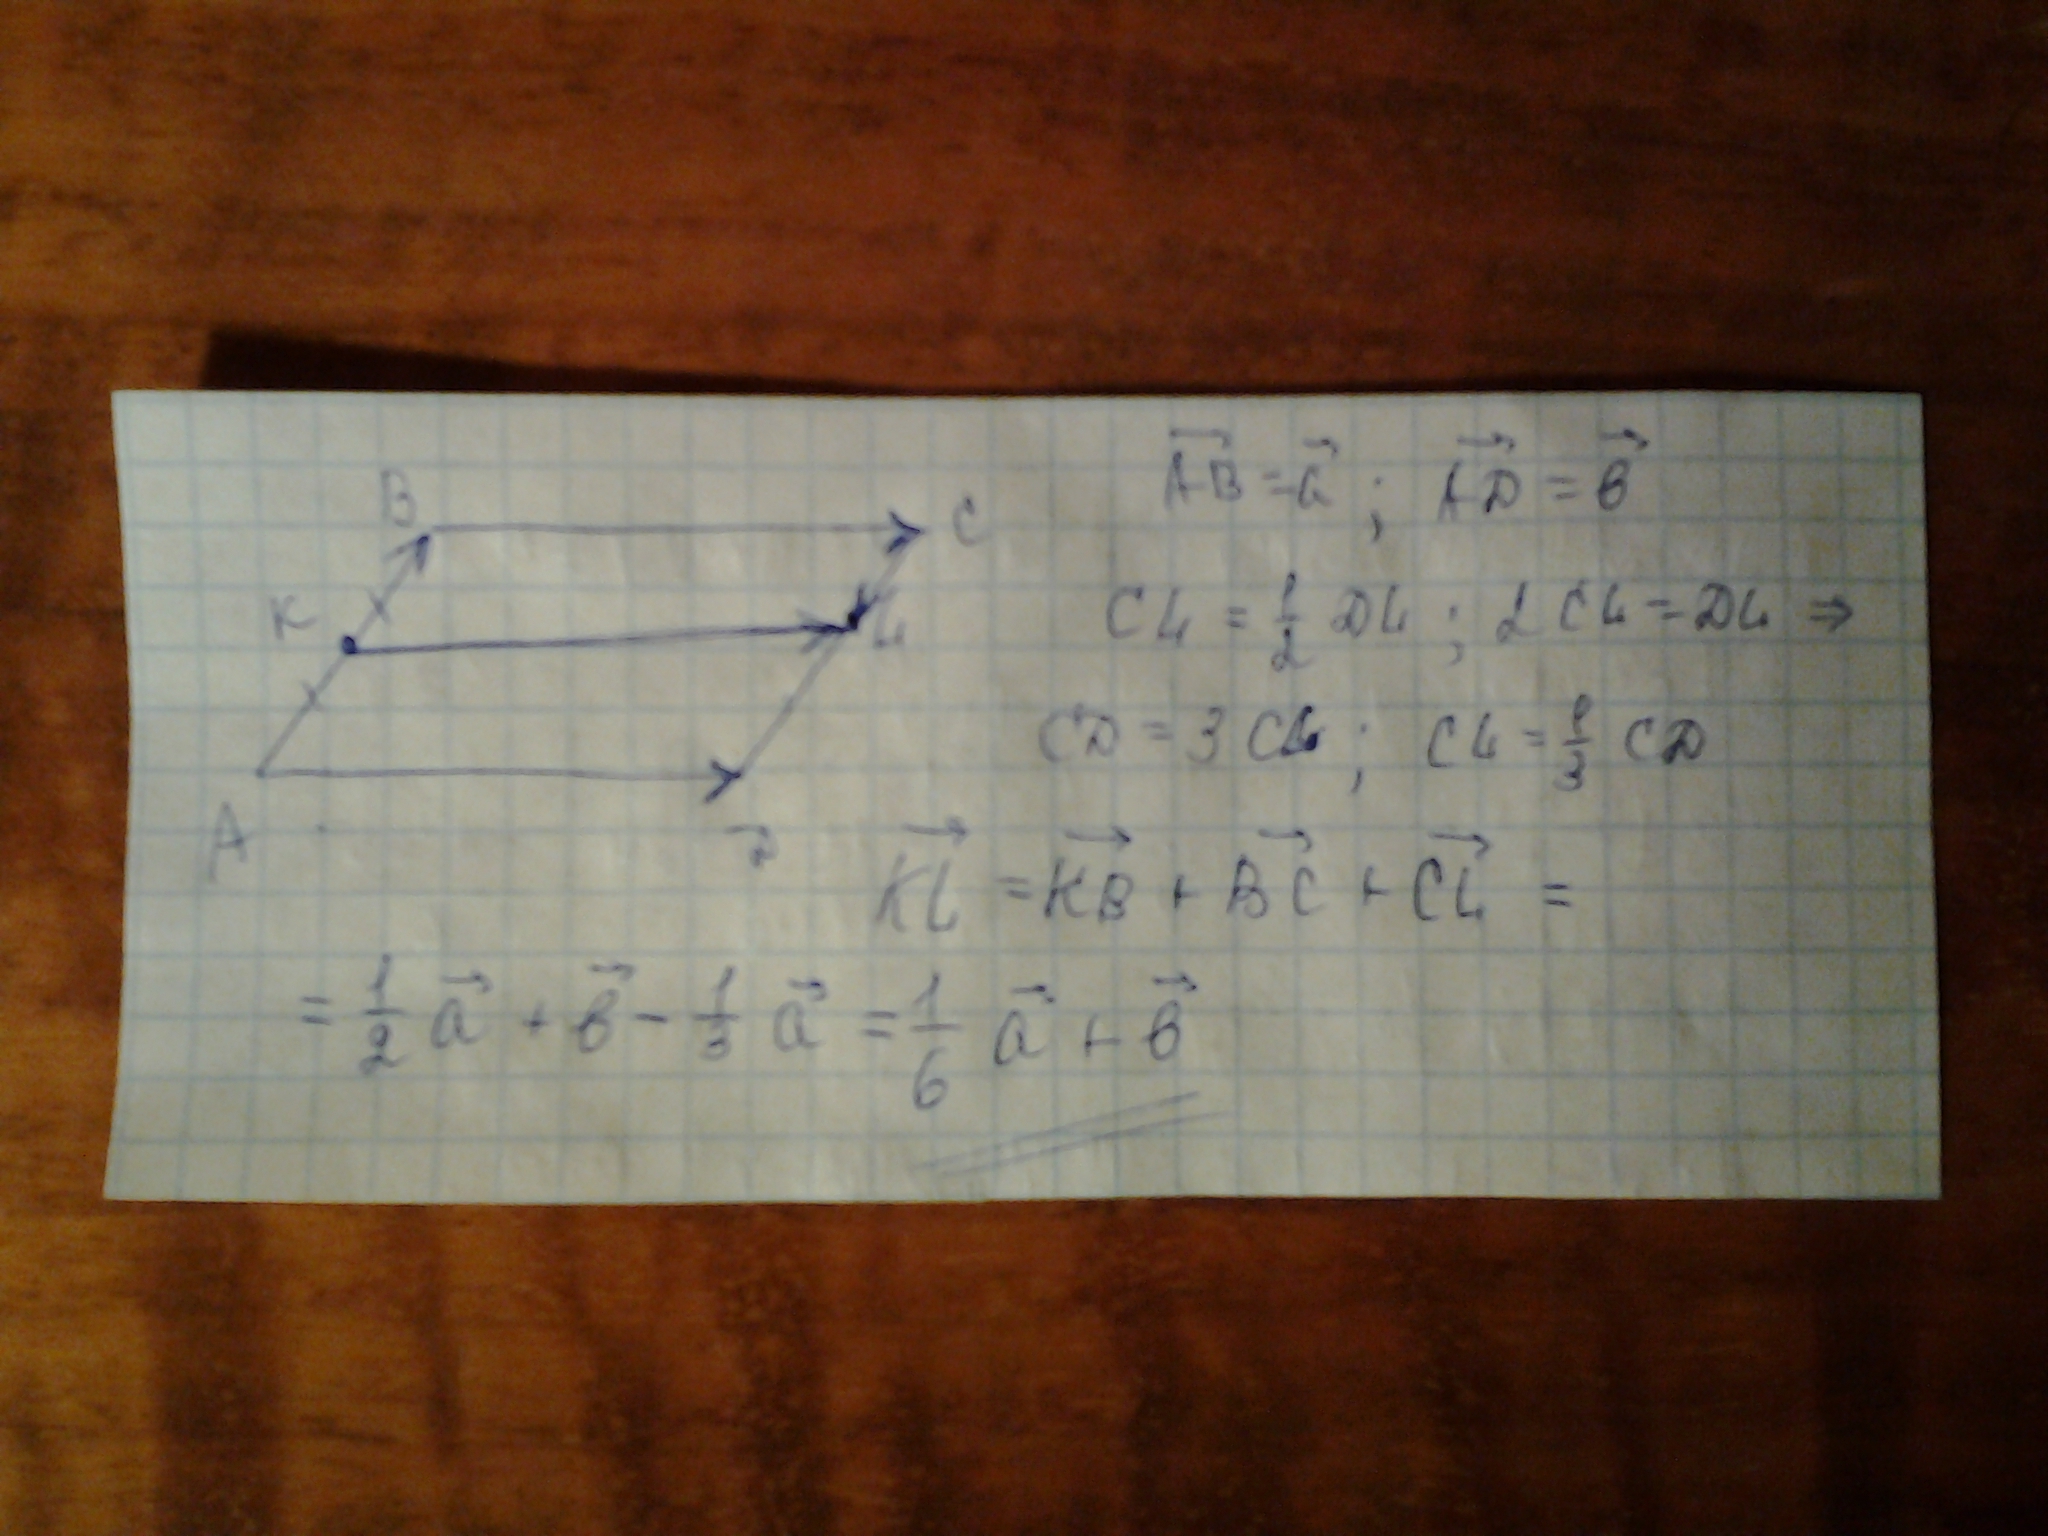 B
C
K
L
A
D
AB⃗ = a⃗ ; AD⃗ = в⃗
CL = 1/2 DL ; 2 CL = DL ⇒
CD = 3 CL ; CL = 1/3 CD
KL⃗ = KB⃗ + BC⃗ + CL⃗ =
= 1/2 a⃗ + в⃗ - 1/3 a⃗ = 1/6 a⃗ + в⃗